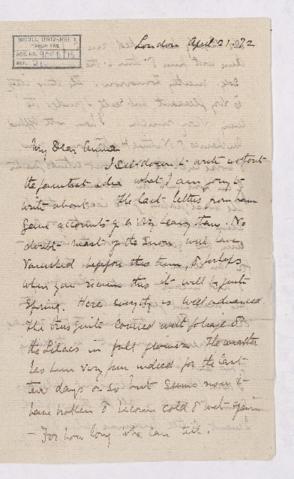 London April 21, 72
My Dear
I sit down to write without
the faintest idea what I am going to
write about. The last letters from home
gave accounts of a very heavy storm. No
doubt most of the snow will have
vanished before this time, & perhaps
when you receive this it will be quite
Spring. Here everything is well advanced
The trees quite covered with foliage &
the lilacs in full The weather
has been very fine indeed for the last
ten days or so but seems now to
have broken & become cold & wet again
- For how long no one can tell.